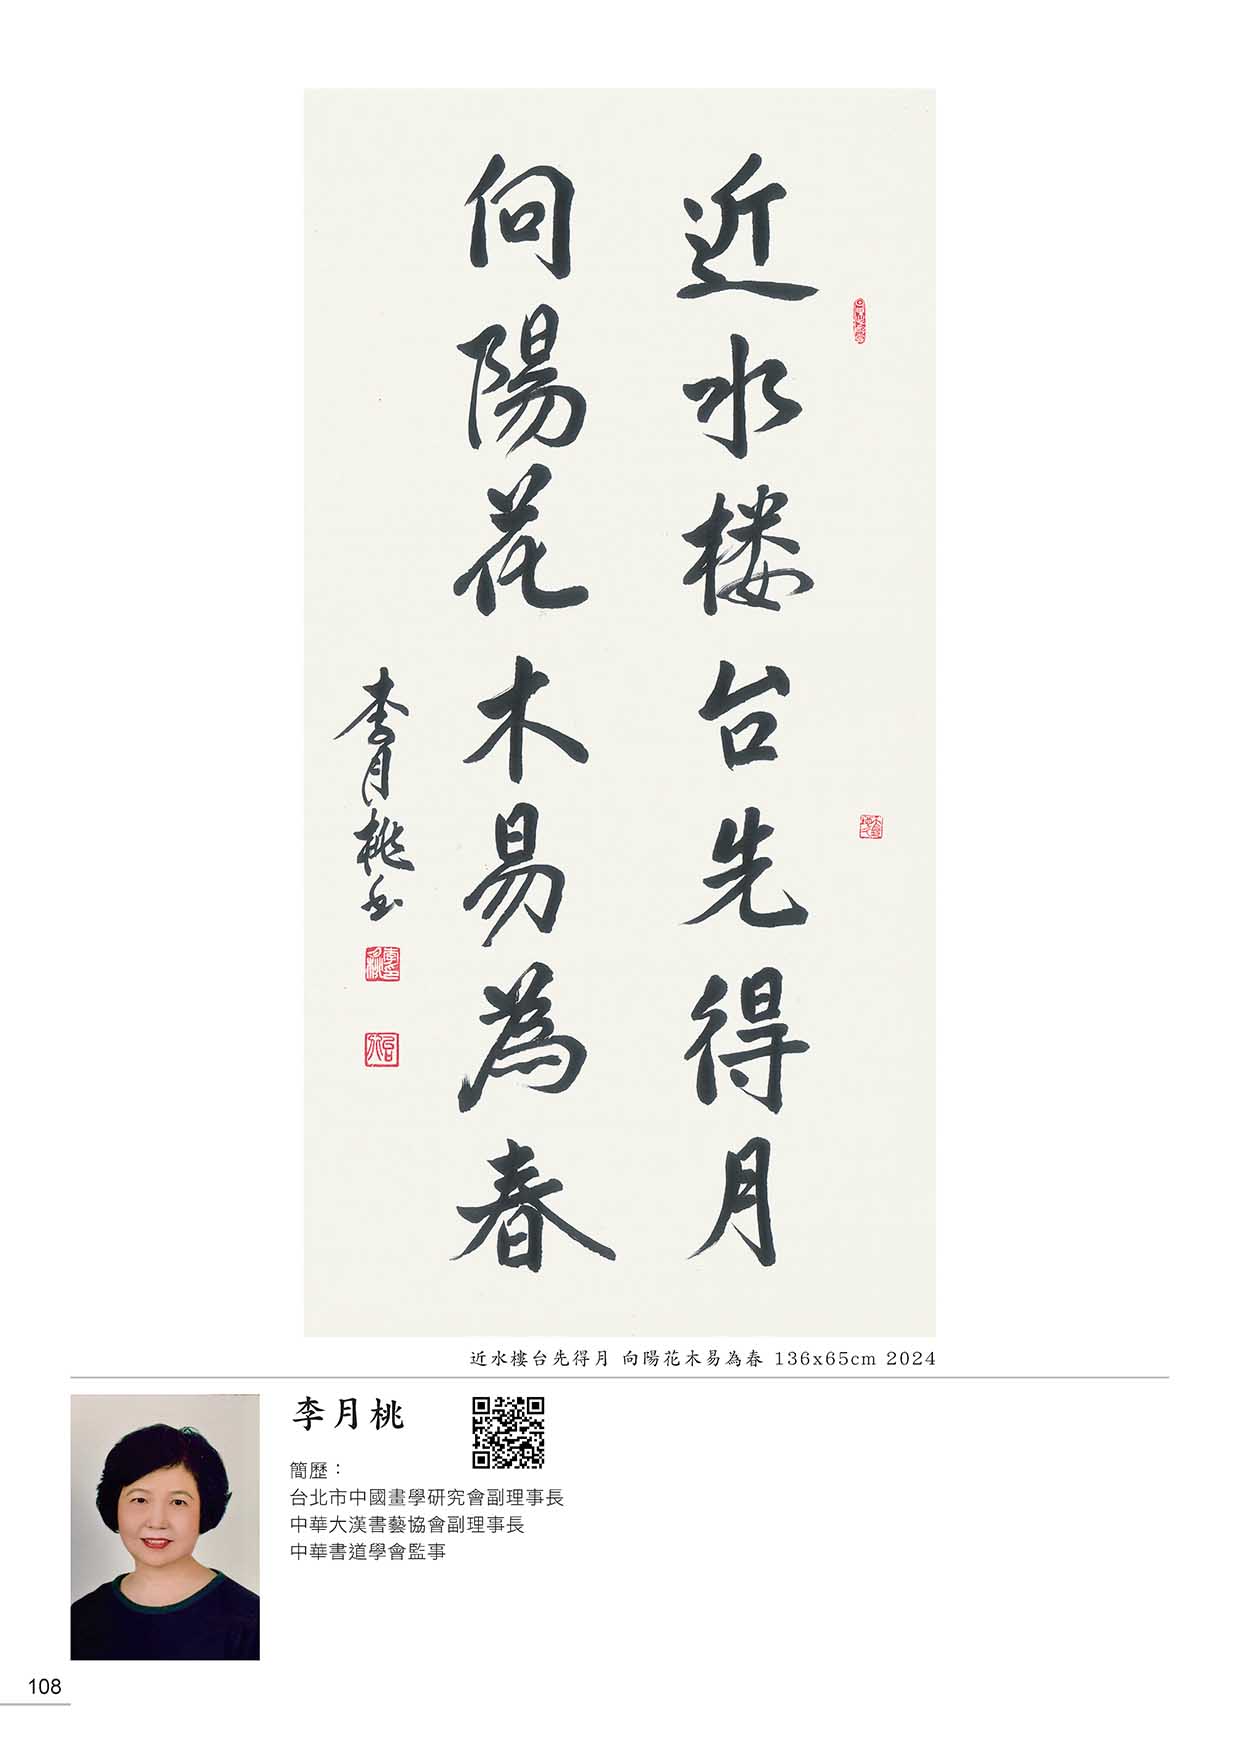 近水楼台先得月
向陽花木易為春
李月桃書
近水樓台先得月 向陽花木易為春 136x65cm 2024
李月桃
簡歷：
台北市中國畫學研究會副理事長
中華大漢書藝協會副理事長
中華書道學會監事
108